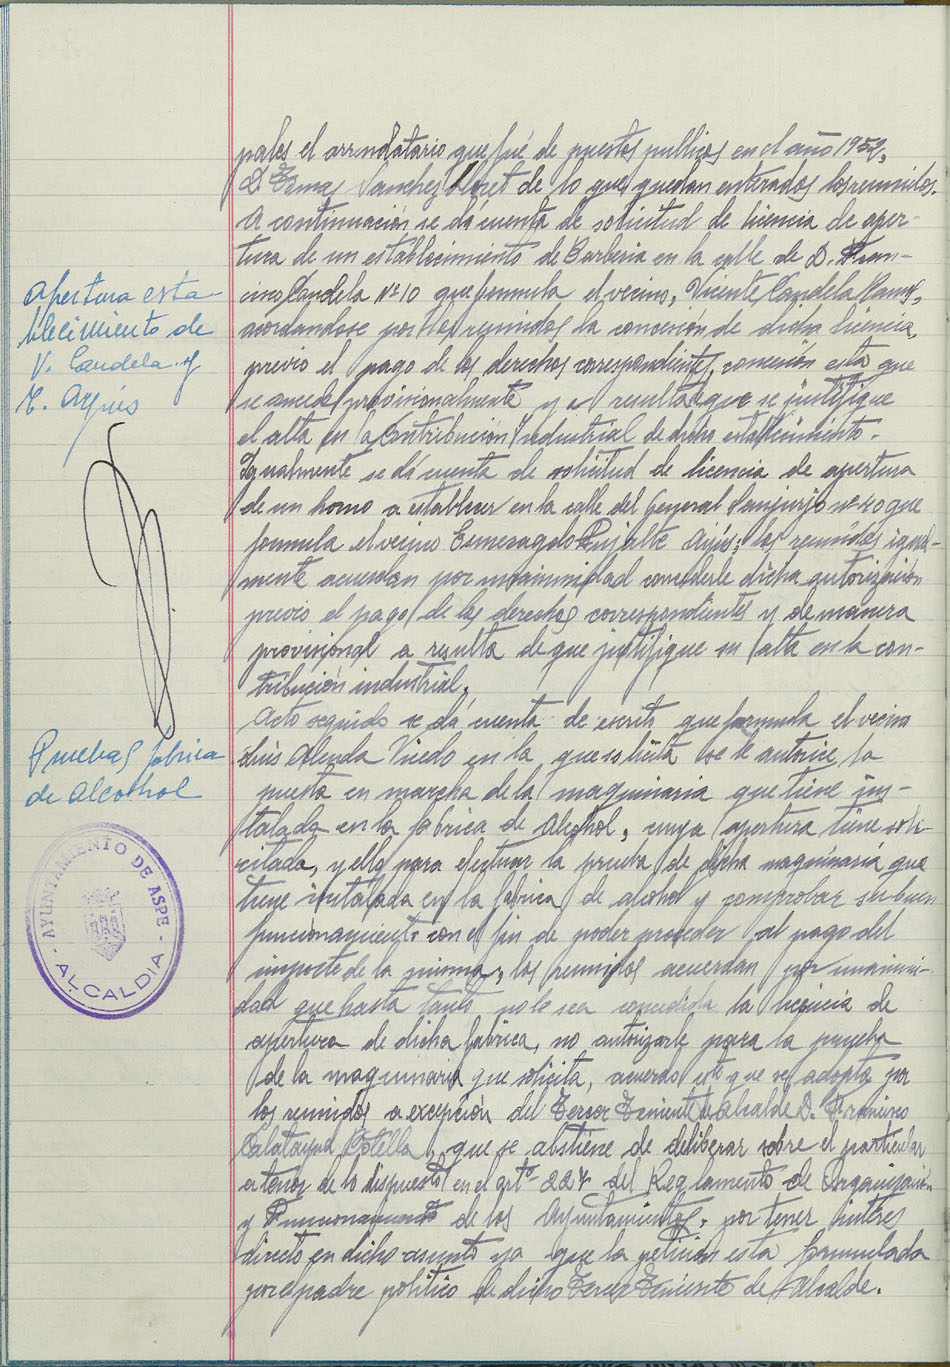 pales el arrendatario que fué de puestos publicos en el año 1952,
D. Tomas Sanchez Lloret de lo que quedan enterados los reunidos.
A continuación se dá cuenta de solicitud de licencia de aper-
tura de un establecimiento de Barberia en la calle de D. Fran-
cisco Candela Nº 10 que formula el vecino, Vicente Candela
acordandose por los reunidos la concesión de dicha licencia,
previo el pago de los derechos correspondientes, concesión esta que
se concede provisionalmente y a resulta que se justifique
el alta en la Contribución Industrial de dicho establecimiento.
Igualmente se dá cuenta de solicitud de licencia de apertura
de un horno a establecer en la calle del General Sanjurjo nº 20 que
formula el vecino Pujalte Ayús; los reunidos igual-
mente acuerdan por unanimidad concederle dicha autorización
previo el pago de los derechos correspondientes y de manera
provisional a resulta de que justifique su alta en la con-
tribución industrial.
Acto seguido se dá cuenta de escrito que formula el vecino
Luis Alenda en la que solicita se le autorice, la
puesta en marcha de la maquinaria que tiene ins-
talada en la fabrica de Alcohol, cuya apertura tiene soli-
citada, y ello para efectuar la prueba de dicha maquinaria que
tiene instalada en la fabrica de alcohol y comprobar su buen
funcionamiento con el fin de poder proceder al pago del
importe de la misma, los reunidos acuerdan por unanimi-
dad que hasta tanto no le sea concedida la licencia de
apertura de dicha fabrica, no autorizarle para la prueba
de la maquinaria que solicita, acuerdo este que se adopta por
los reunidos a excepción del Tercer Teniente de Alcalde D. Francisco
Calatayud Botella, que se abstiene de deliberar sobre el particular
a tenor de lo dispuesto en el artº 227 del Reglamento de Organización
y Funcionamiento de los Ayuntamientos, por tener interes
directo en dicho asunto ya que la petición esta formulada
por el padre politico de dicho Tercer Teniente de Alcalde.
Apertura esta
blecimiento de
V. Candela y
T. Ayús
Pruebas fabrica
de alcothol
AYUNTAMIENTO DE ASPE
- ALCALDIA -